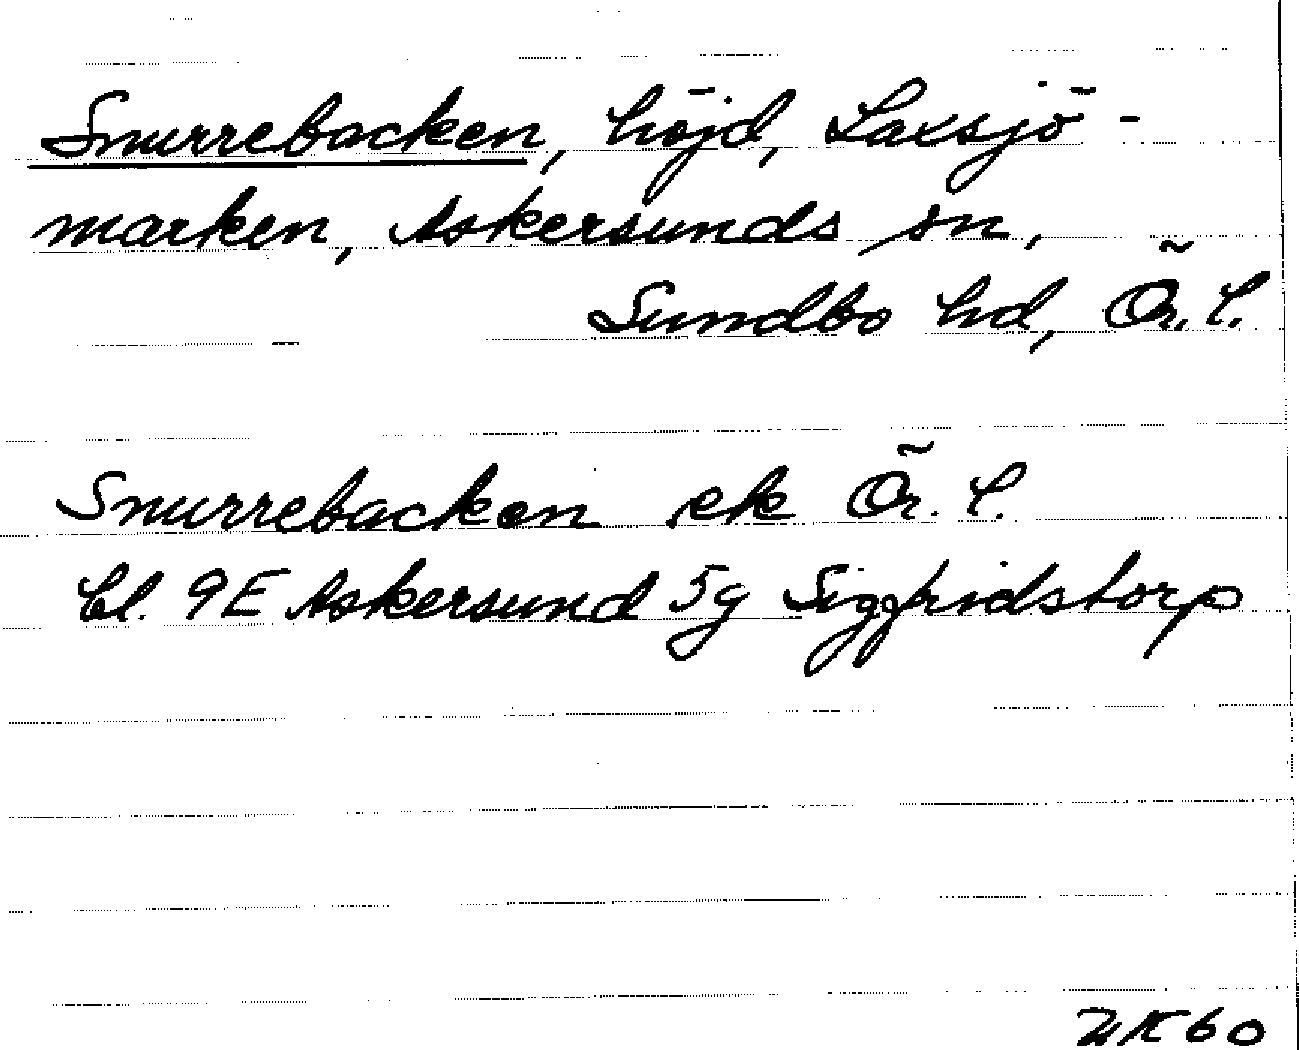 Snurrebacken, höjd, Laxsjö-
marken, Askersunds sn,
Sundbo hd, Ör. l.
Snurrebacken ek Ör. l.
Bl. 9E Askersund 5g Siggfridstorp